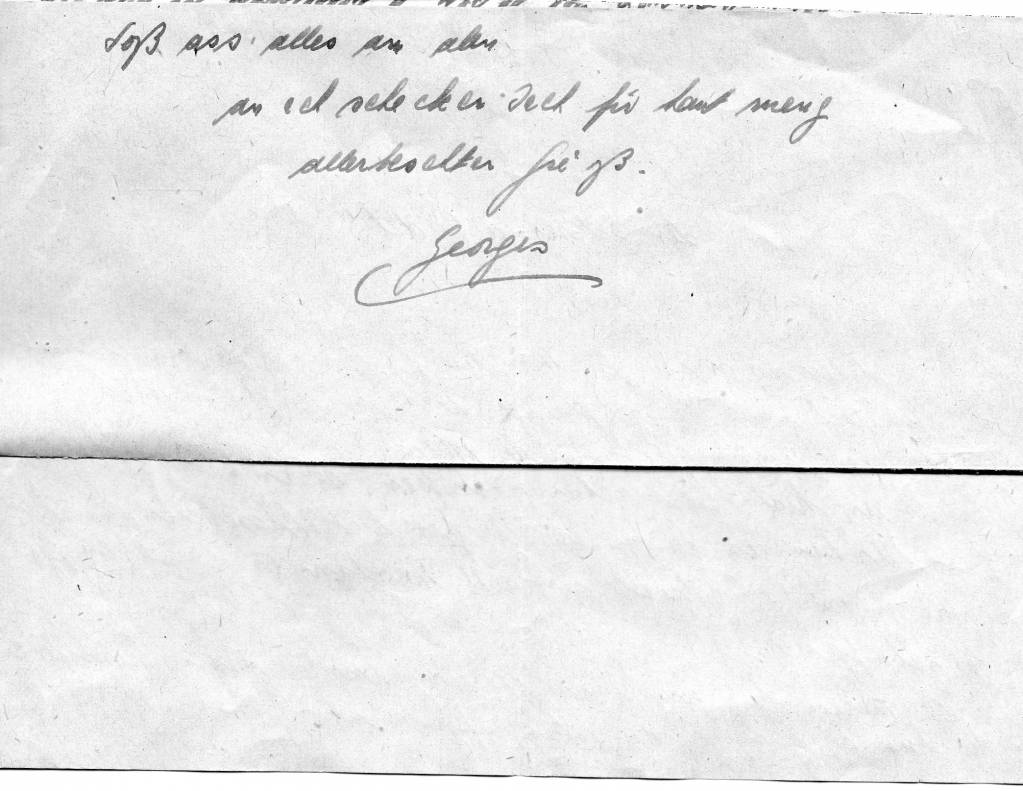 Soß ass alles an alen
an ech schecken Iech fir haut meng
allerbeschten Gréiß.
Georges